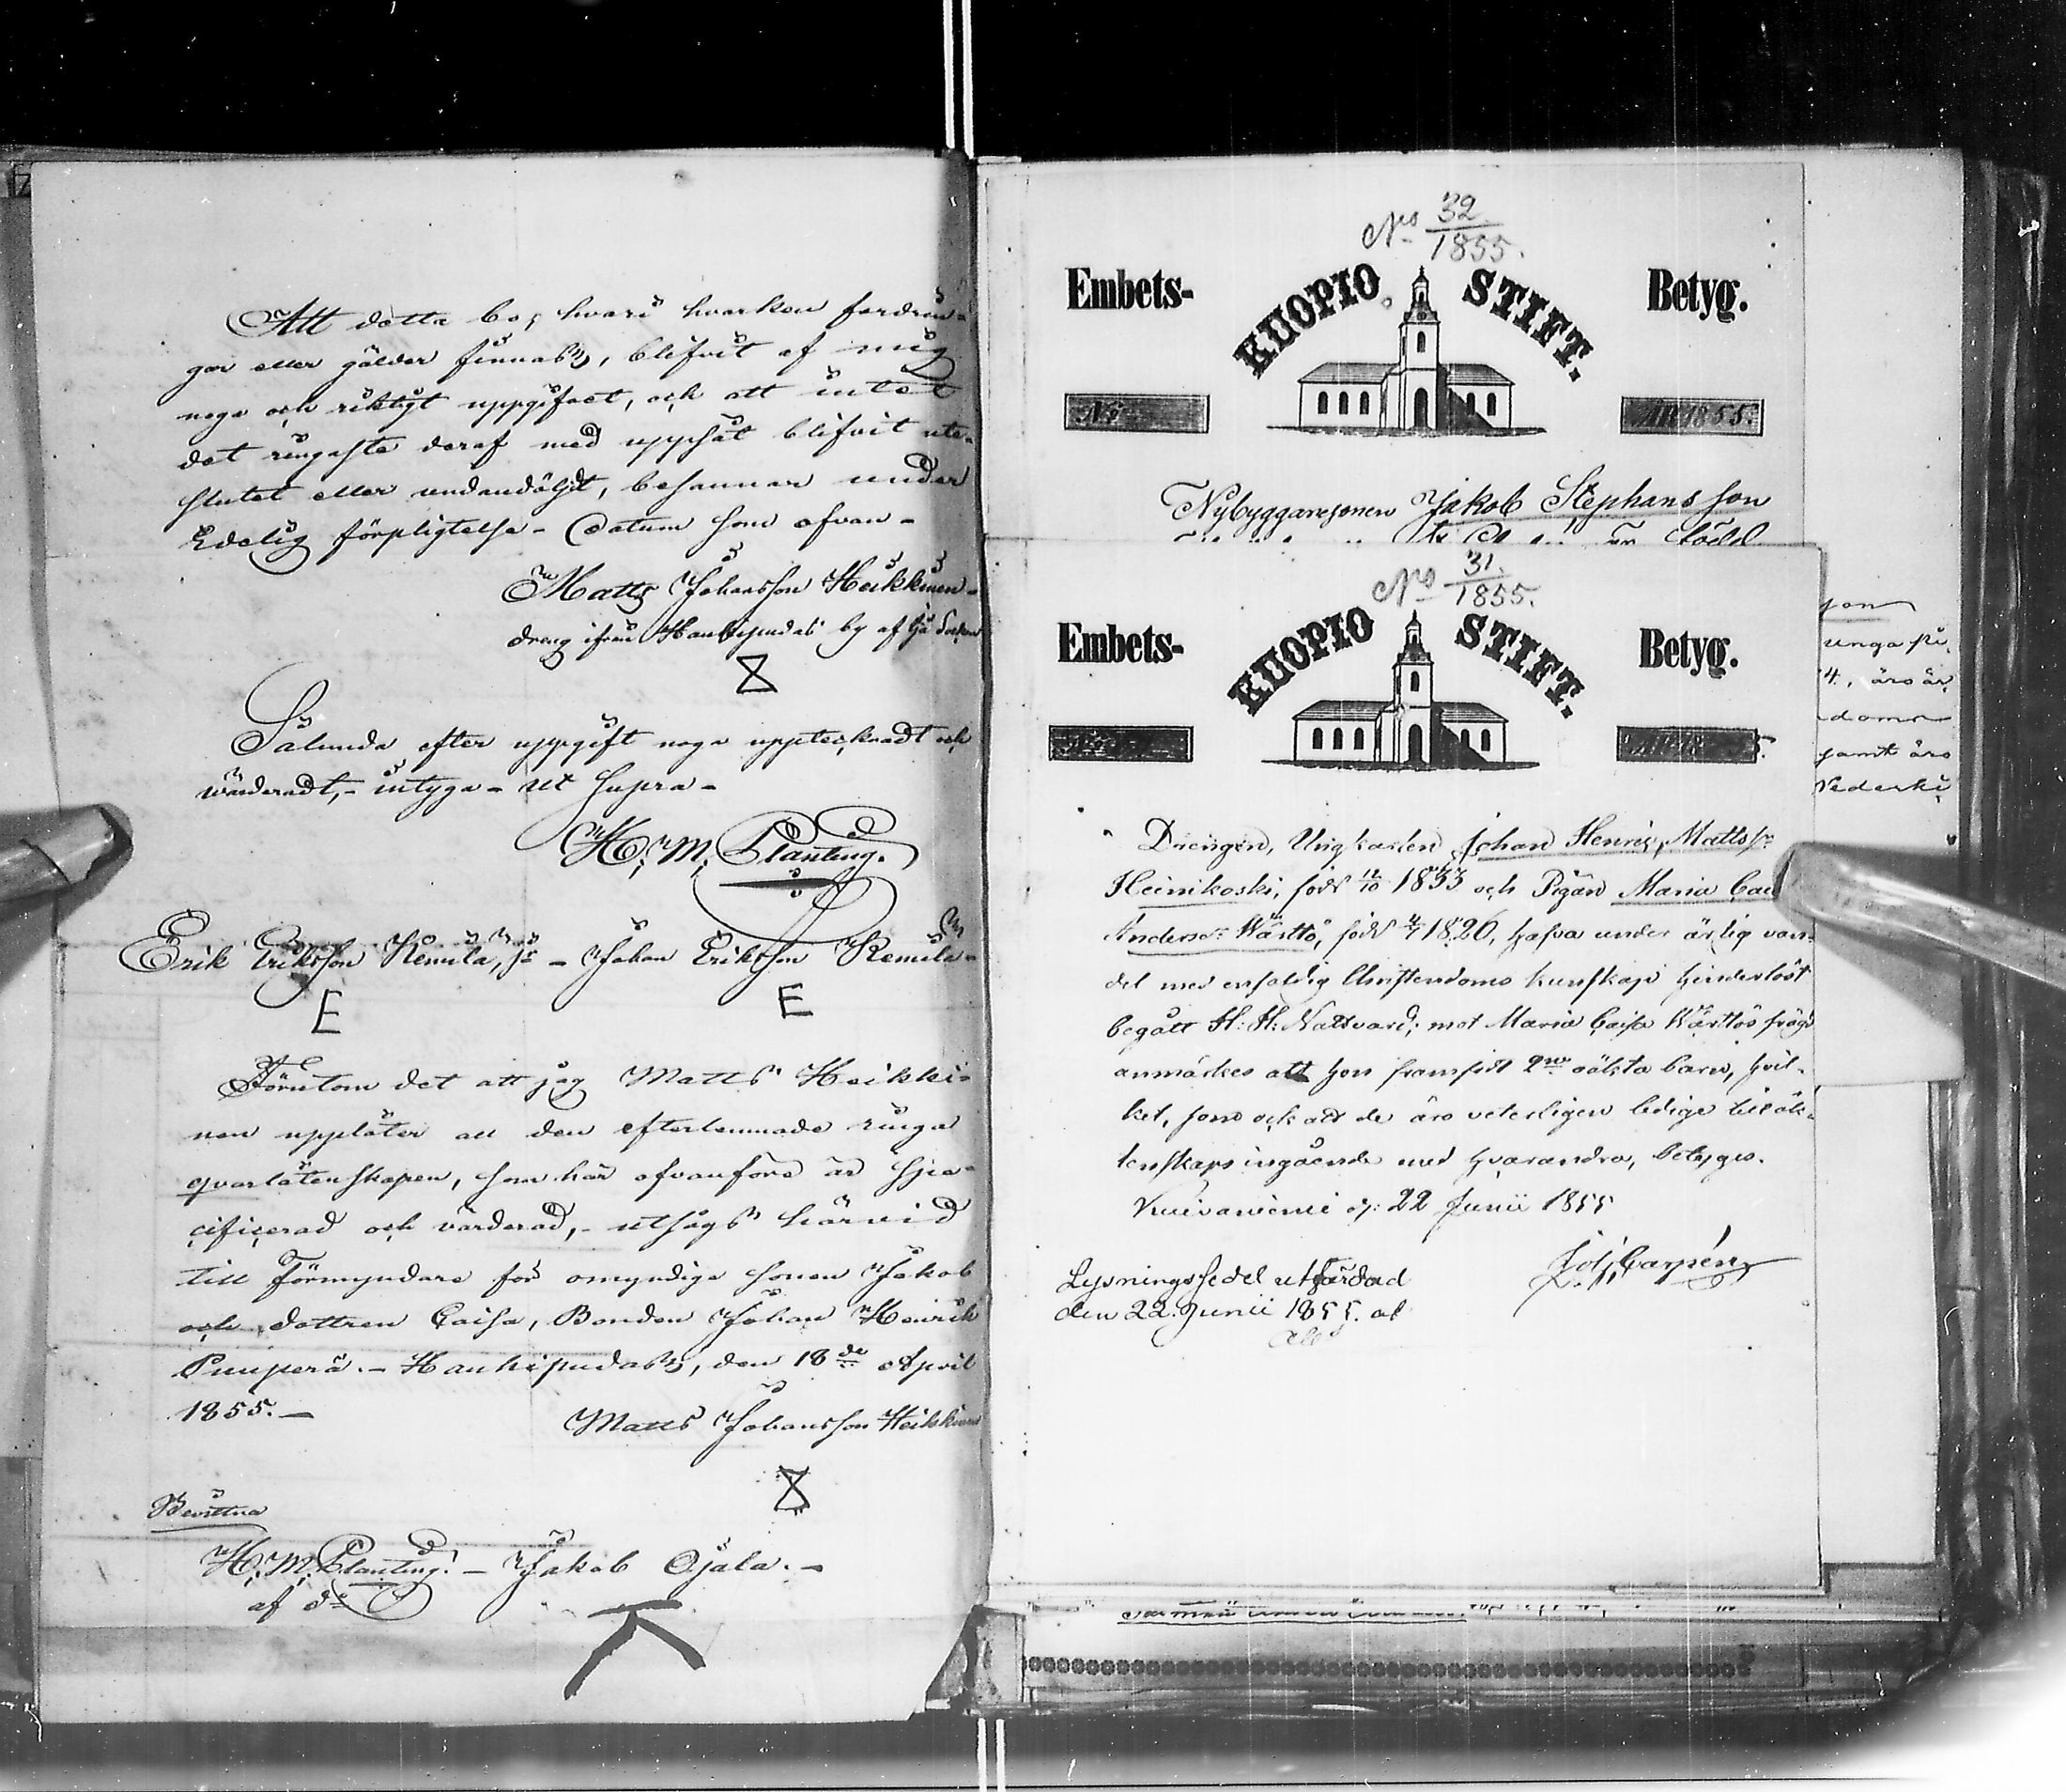 Att detta bo, hvari hvarken fordrin-
gar eller gälder finnas, blifvit af mig
noga och riktigt uppgifvet, och att intet
det ringaste deraf med uppsåt blifvit ute-
slutet eller undandöljdt, besannar under
Edelig förpligtelse - Datum som ofvan -
Matts Johansson Heikkinen -
dreng ifrån Haukipudas by af Socken
Sålunda efter uppgift noga upptecknadt och
värderadt, - intyga - Ut supra -
H. M. Planting.
Erik Eriksson Kemila, - Johan Eriksson Kemilä -
E E
Förutom det att jag Matts Heikki-
nen upplåter all den efterlemnade ringa
qvarlåtenskapen, som här ofvanföre är spe-
cificerad och värderad, - utsågs härvid
till Förmyndare för omyndige sonen Jakob
och dottren Caisa, Bonden Johan Henrik
Puuperä. - Haukipudas, den 18de April
1855. -
Matts Johansson Heikkinen
Bevittna
H. M. Planting. - Jakob Ojala. -
af do
No 32/1855.
Embets- KUOPIO STIFT. Betyg.
No ÅR 1855.
Nybyggaresonen Jakob Stephansson
född
No 31./1855.
Embets- KUOPIO STIFT. Betyg.
Drengen, Ungkarlen Johan Henric Matts sn
Heinikoski, född 12/10 1833 och Pigan Maria Cai
Andersdr Wärttö, född 4/7 1826, hafva under ärlig van-
del med enfaldig Christendoms kunskap hinderlöst
begått H: H: Nattvard; mot Maria Caisa Wärttös frägd
anmärkes att hon framfödt 2ne oäkta barn, hvil-
ket, som ock att de äro veterligen ledige till äk-
tenskaps ingående med hvarandra, betyges.
Kuivaniemi d: 22 Junii 1855
Joh. Carpén
Lysningssedel utfärdad
den 22. Junii 1855. af
son
unga pi.
4., äro är
domo
samt äro
Vederkö